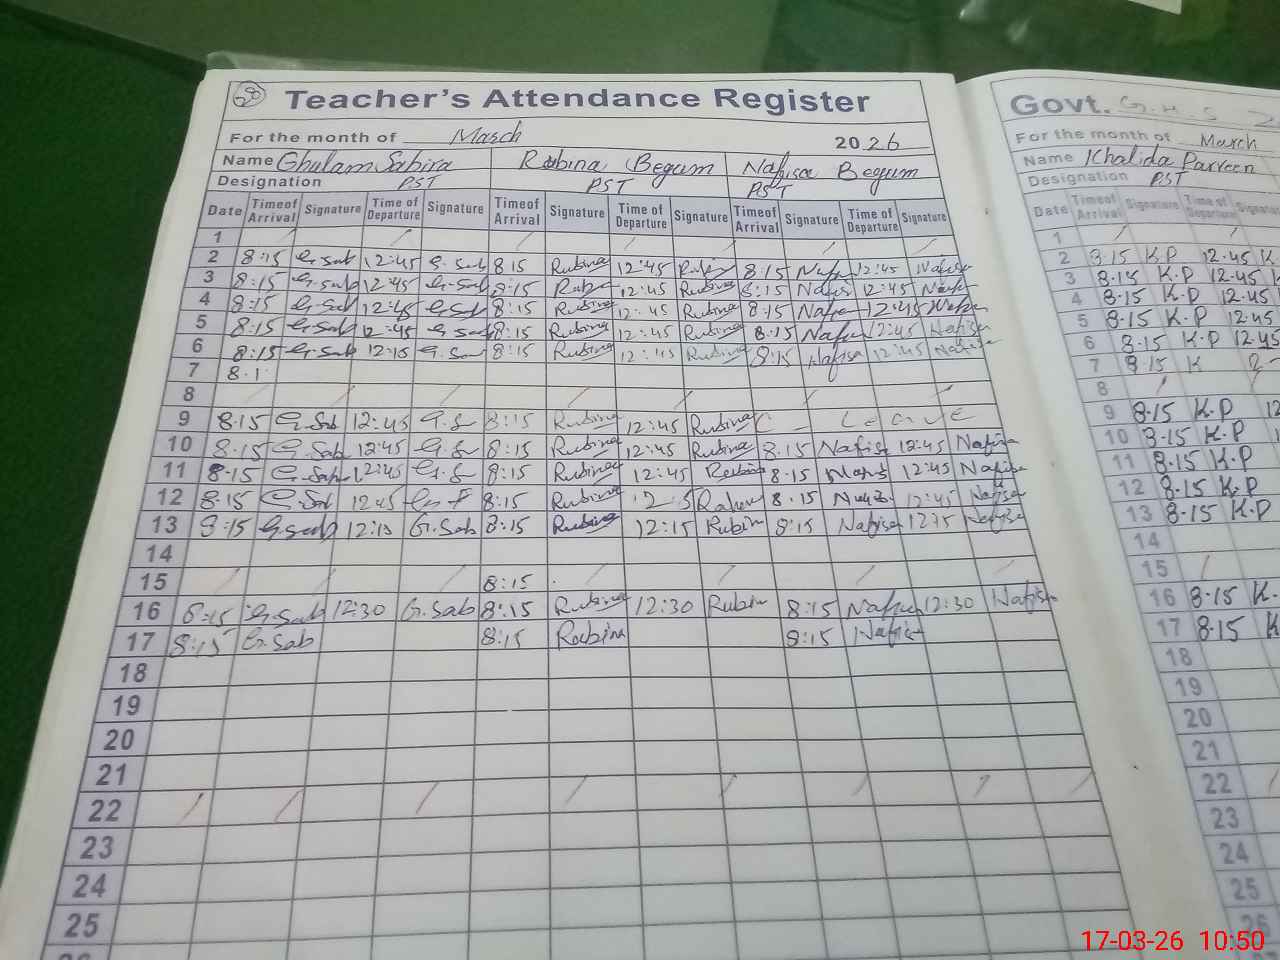 Teacher's Attendance Register
For the month of March 2026
Name Ghulam Sabira Rubina Begum Nafisa Begum
Designation PST PST PST
Date Time of Arrival Signature Time of Departure Signature Time of Arrival Signature Time of Departure Signature Time of Arrival Signature Time of Departure Signature
1
2 8:15 G.Sab 12:45 G.Sab 8:15 Rubina 12:45 8:15 12:45 Nafisa
3 8:15 G.Sab 12:45 G.Sab 8:15 12:45 Rubina 8:15 Nafis 12:45
4 8:15 G.Sab 12:45 G.Sab 8:15 Rubina 12:45 Rubina 8:15 12:45
5 8:15 G.Sab 12:45 G.Sab 8:15 Rubina 12:45 Rubina 8:15 12:45 Nafisa
6 8:15 G.Sab 12:15 8:15 Rubina 12:45 Rubina 8:15 Nafisa 12:45 Nafisa
7 8:1
8
9 8:15 G.Sab 12:45 G.S 8:15 Rubina 12:45 Rubina C - Leave
10 8:15 G.Sab 12:45 G.S 8:15 Rubina 12:45 Rubina 8:15 Nafisa 12:45 Nafisa
11 8:15 G.Sab 12:45 G.S 8:15 Rubina 12:45 8:15 12:45 Nafisa
12 8:15 G.Sab 12:45 8:15 Rubina 8:15 12:45 Nafisa
13 8:15 G.Sab G.Sab 8:15 Rubina 12:15 Rubin 8:15 Nafisa Nafisa
14
15 8:15
16 8:15 G.Sab 12:30 G.Sab 8:15 Rubina 12:30 Rubin 8:15 12:30 Nafisa
17 8:15 G.Sab 8:15 Rubina 8:15 Nafisa
18
19
20
21
22
23
24
25
Govt. G.H.S
For the month of March
Name Khalida Parveen
Designation PST
Date Time of Arrival Signature Time of Departure
1
2 8.15 K.P 12.45 K
3 8.15 K.P 12.45 K
4 8.15 K.P 12.45
5 8.15 K.P 12.45
6 8.15 K.P 12.45
7 8.15 K
8
9 8.15 K.P
10 8.15 K.P
11 8.15 K.P
12 8.15 K.P
13 8.15 K.P
14
15
16 8.15 K.
17 8.15 K
18
19
20
21
22
23
24
25
26
17-03-26 10:50